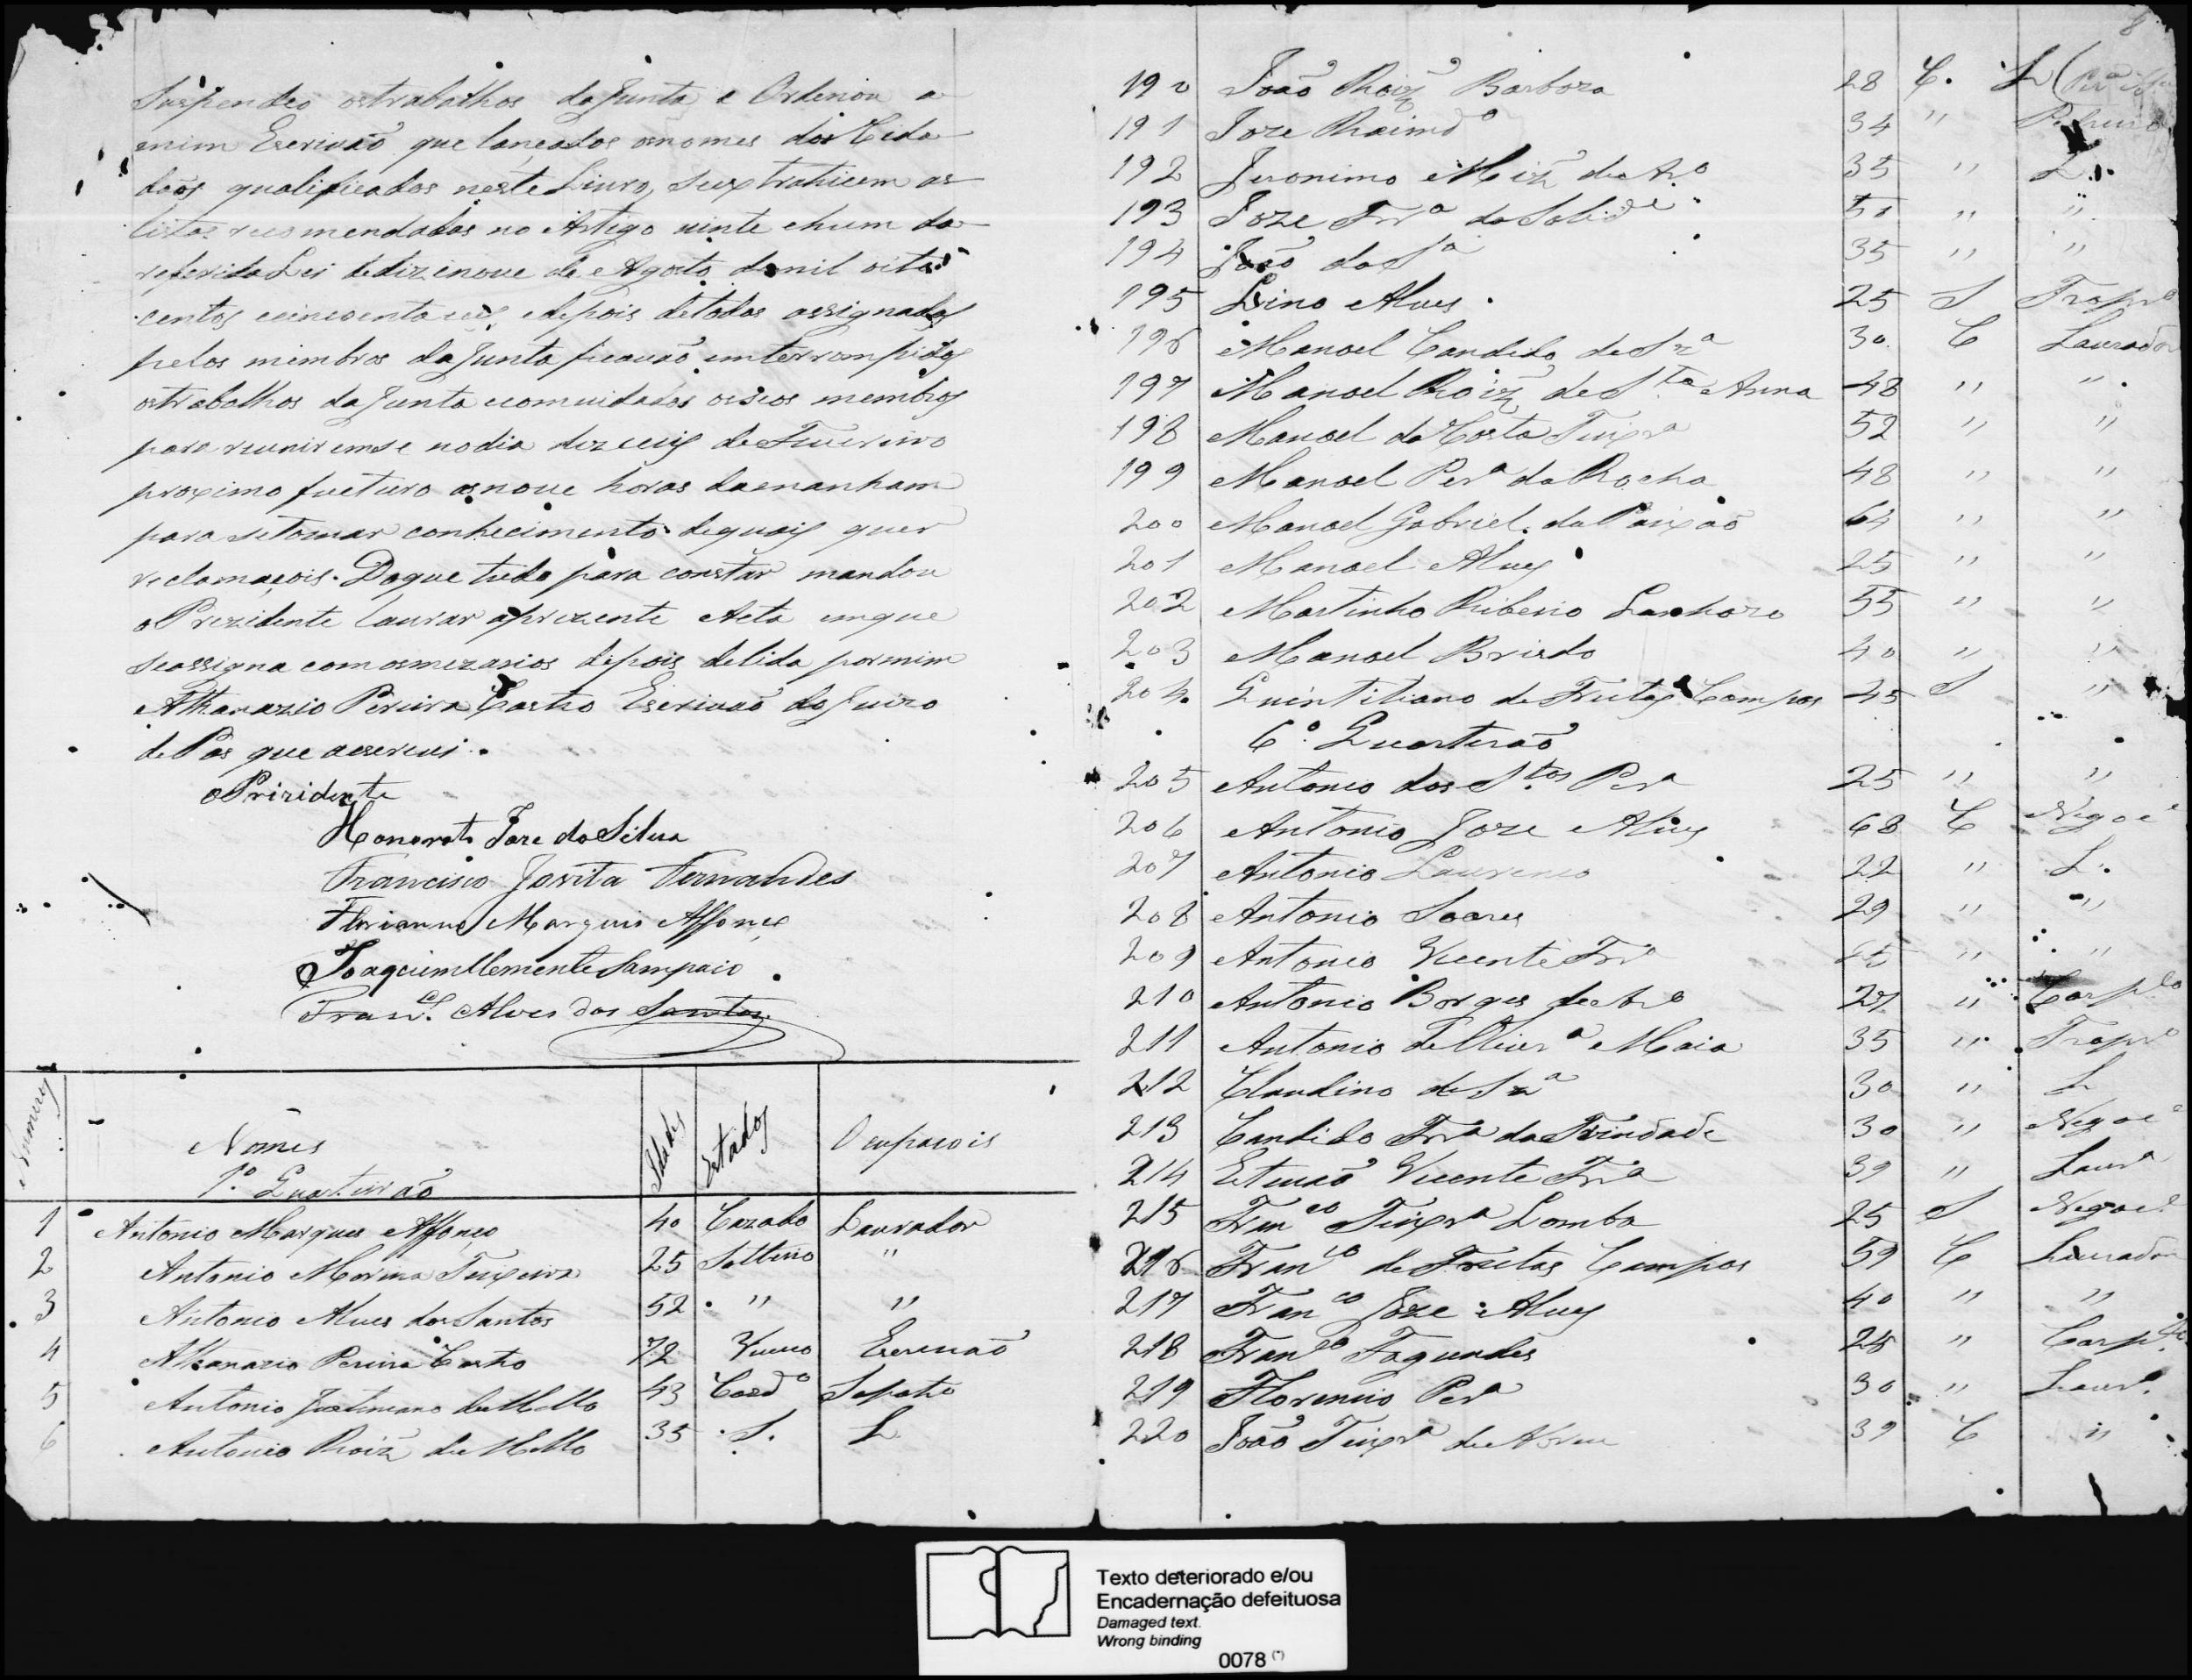 Suspendeo ostrabalhos da Junta e Ordenou a
mim Escrivaõ que lançados osnomes dos Cida
daõs qualificados neste Livro, se extrahicem as
listas recomendadas no Artigo vinte ehum da
referida Lei dedizenove de Agosto demil oito
centos ecincoenta eseis, edepois detodas assignadas
pelos membros da Junta ficavaõ interrompidos
ostrabalhos da Junta econvidados osseos membros
para reuniremse nodia dezceis de Fevereiro
proximo fueturo asnove horas damanham
para setomar conhecimento dequais quer
reclamaçois. Doque tudo para constar mandou
oPrezidente lavrar aprezente Acta emque
seassigna comosmezarios depois delida pormim
Athanazio Pereira Castro Escrivaõ do Juizo
dePas que aescrevi.
oPrizidente
Honorato Joze da Silva
Francisco Jovita Fernandes
Florianno Marques Affonço
Joaquim Clemente Sampaio
Franco. Alves dos Santos
Numeros Nomes Idades Estados Ocupasois
1º. Quarteirão
1 Antonio Marques Affonço 40 Cazado Lavrador
2 Antonio Moreira Teixeira 25 Solteiro "
3 Antonio Alves dos Santos 52 " "
4 Athanazio Pereira Castro 72 Viuvo Escrivaõ
5 Antonio Justiniano de Mello 43 Cazdo Sapatro
6 Antonio Roiz de Mello 35 S. L
8
190 Joaõ Roiz Barboza 28 C. L
191 Joze Raimdo 34 "
192 Jeronimo Miz de Aro 35 " L.
193 Joze Frra da Solide " "
194 Joaõ da Sa 35 " "
195 Lino Alves 25 S Tropro
196 Manoel Candido de Sza 30 C Lavrador
197 Manoel Roiz de Sta Anna 48 " "
198 Manoel da Costa Teixra 52 " "
199 Manoel Pera da Rocha 48 " "
200 Manoel Gabriel da Paixaõ 64 " "
201 Manoel Alves 25 " "
202 Martinho Ribeiro 55 " "
203 Manoel 40 " "
204 Quintiliano de Freitas Campos 45 S "
6º. Quarteraõ
205 Antonio dos Stos Pera 25 " "
206 Antonio Joze Alves 68 C Negoce
207 Antonio Lourenco 22 " L.
208 Antonio Soares 29 " "
209 Antonio Vicente Frra " "
210 Antonio Borges de Aro 27 " Carpro
211 Antonio de Olivra Maia 35 " Tropro
212 Claudino de Sza 30 " L
213 Candido Frra da Trindade 30 " Negoce
214 Estevaõ Vicente Frra 39 " Lavra
215 Franco Teixra Lomba 25 S Negoce
216 Franco de Freitas Campos 59 C Lavrador
217 Franco Joze Alves 40 " "
218 Franco Fagundes 28 "
219 Florencio Pera 30 " Lavra.
220 Joaõ Teixra de Abreu 39 C "
Texto deteriorado e/ou
Encadernação defeituosa
Damaged text.
Wrong binding
0078 (*)